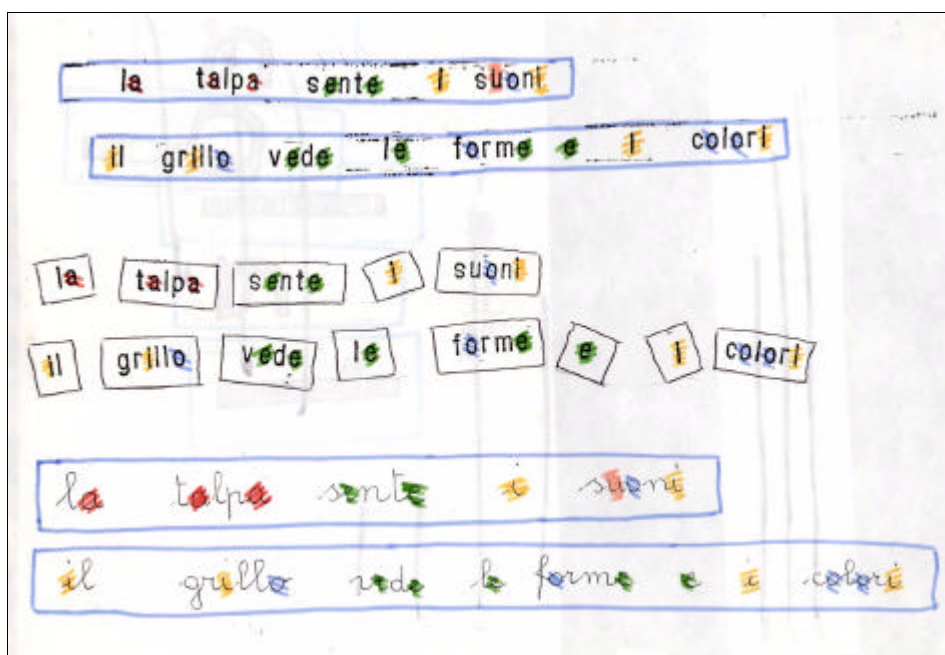 la talpa sente i suoni
il grillo vede le forme e i colori
la talpa sente i suoni
il grillo vede le forme e i colori
la talpa sente i suoni
il grillo vede le forme e i colori